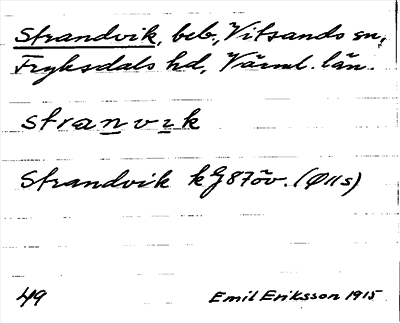 Strandvik, beb., Vitsands sn,
Fryksdals hd, Värml. län.
stranvik
Strandvik kg 87öv. (Ø11s)
49 Emil Eriksson 1915